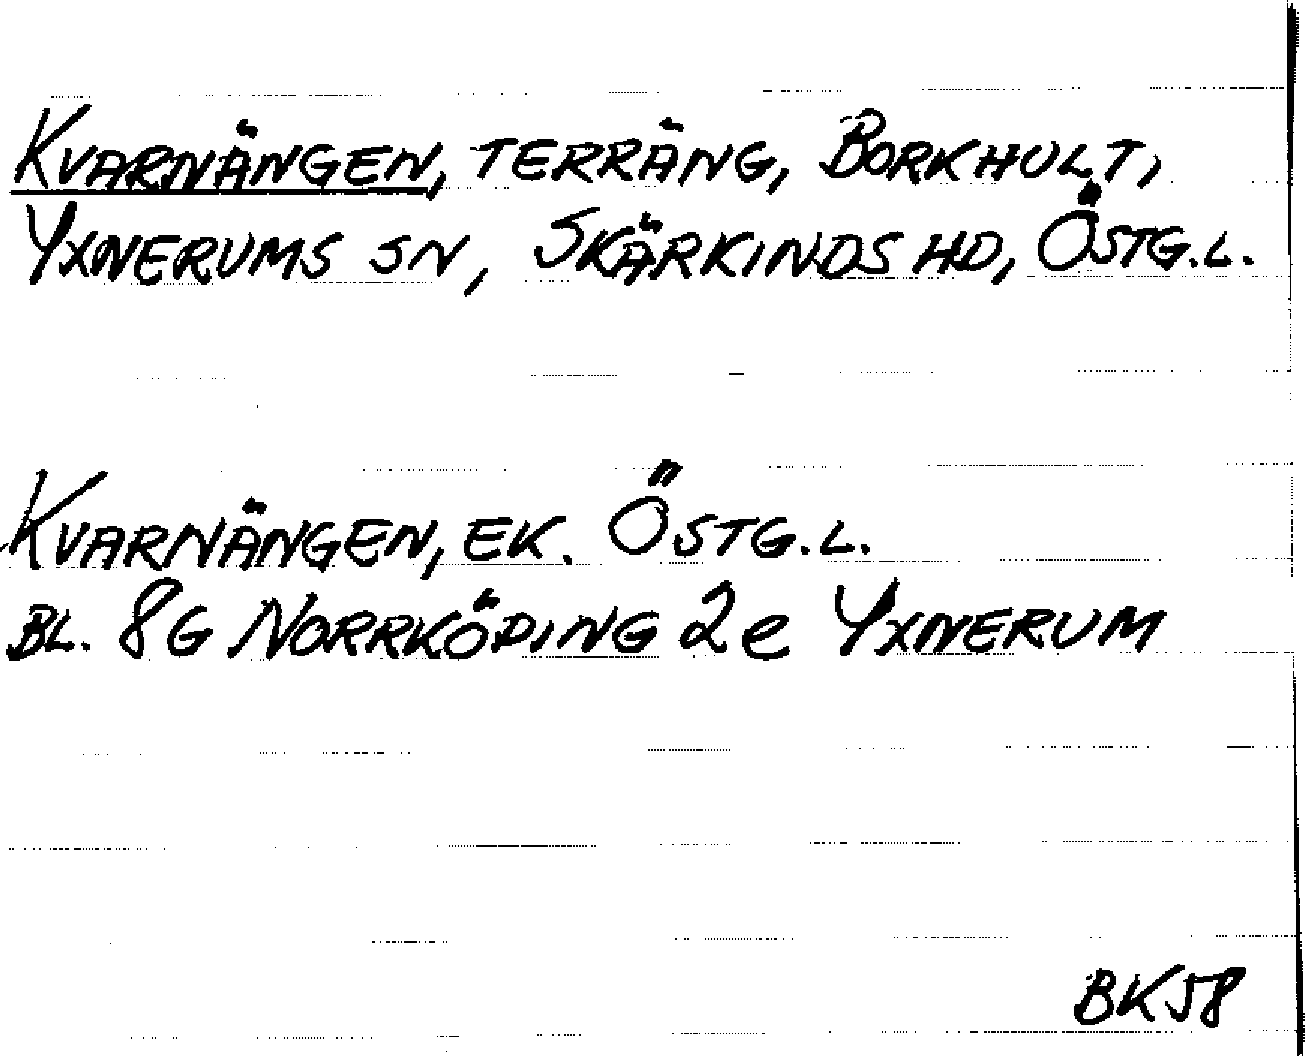 KVARNÄNGEN, TERRÄNG, BORKHULT,
YXNERUMS SN, SKÄRKINDS HD, ÖSTG.L.
KVARNÄNGEN, EK. ÖSTG.L.
BL. 8G NORRKÖPING 2e YXNERUM
BK58